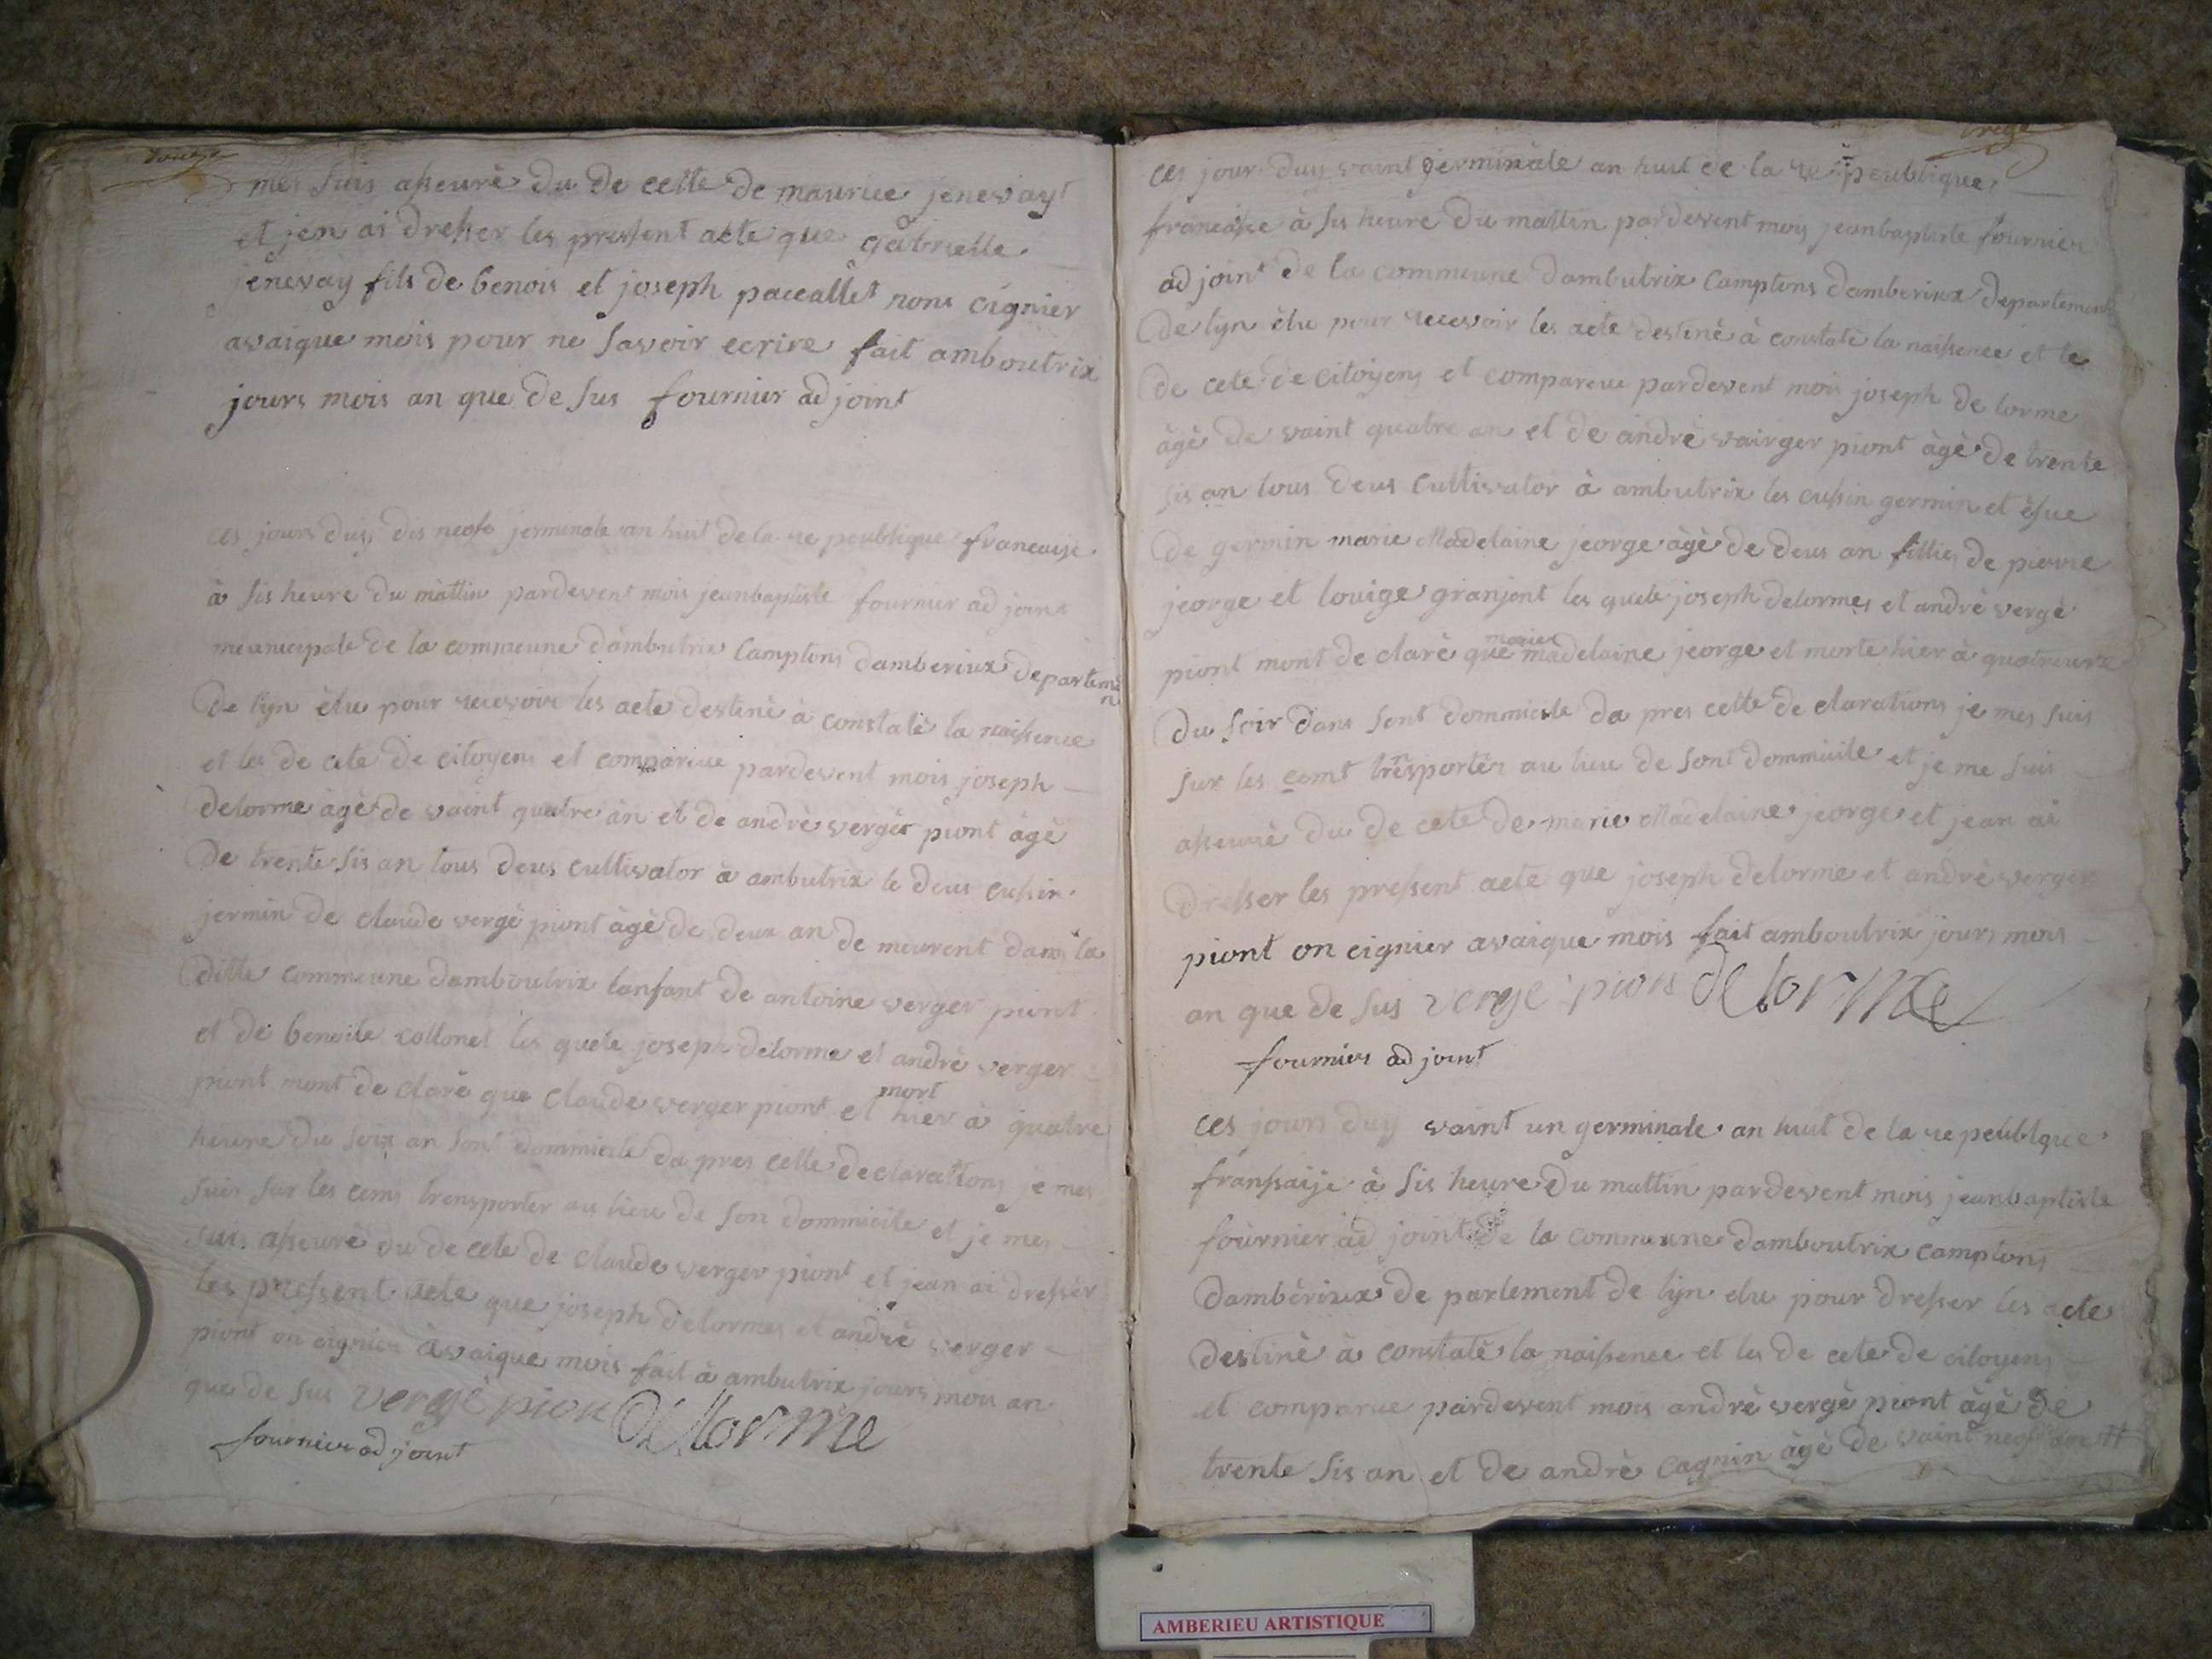 douze
mes suis asseuré du de cette de maurice jenevay
et jen ai dresser les pressent acte que gabrielle
jenevay fils de benois et joseph paccallet nons cignier
avaique mois pour ne savoir ecrire fait amboutrix
jours mois an que de sus fournier ad joint
ces jours duis dis neofe jerminale an huit de la re peublique francaise
à sis heure du mattin pardevent mois jeanbaptiste fournier ad joint
meunicipale de la commeune dambutrix Camptons damberiux departemen
de lyn élu pour recevoir les acte destiné à constaté la naissence
et les de cete de citoyens et compareue pardevent mois joseph
delorme àgè de vaint quatre àn et de andrè vergér piont àgè
de trente sis an tous deus cultivator à ambutrix le deus cussin
jermin de claude vergè piont àgè de deux an de meurent dans la
ditte commeune damboutrix lanfant de antoine verger piont
et de benoite collonet les quele joseph delorme et andrè verger
piont mont de claré que claude verger piont et mort hier à quatre
heure du soir an sont dommicile da pres cette declarations je mes
suis sur les cems trensporter au lieu de son dommicile et je mes
suis asseuré du de cete de claude verger piont et jean ai dresser
les pressent acte que joseph delormes et andrè verger
piont on cignier avaique mois fait à ambutrix jours mois an
que de sus vergé pion Delorme
fournier ad joint
treize
ces jour duy vaint germinale an huit de la re peublique
francaise à sis heure du mattin pardevent moy jeanbaptiste fournier
ad joint de la commeune dambutrix Camptons damberiux departement
de lyn èlu pour recevoir les acte destinè à constatè la naissence et le
de cete de citoyens et compareue pardevent mois joseph de lorme
àgè de vaint quatre an et de andrè vairger piont àgè de trente
sis an tous deus cultivator à ambutrix les cussin germin et èsue
de germin marie Madelaine jeorge àgè de deus an fillies de pierre
jeorge et louige granjont les quele joseph delormes et andrè vergè
piont mont de clarè que marie madelaine jeorge et morte hier à quatreure
du soir dans sont dommicile da pres cette de clarations je mes suis
sur les cemt trensportér au lieu de sont dommicile et je me suis
asseuré du de cete de marie Madelaine jeorge et jean ai
dresser les pressent acte que joseph delorme et andrè verger
piont on cignier avaique mois fait amboutrix jours mois
an que de sus vergé pion Delorme
fournier ad joint
ces jours duy vaint un germinale an huit de la re peublque
franssaije à sis heure du mattin pardevent mois jeanbaptiste
fournier ad joint de la commeune damboutrix camptons
dambèriux de partement de lyn elu pour dresser les acte
destinè à constatè la naissence et les de cete de citoyens
et compareue pardevent mois andrè vergè piont àgè de
trente sis an et de andrè cagnin àgè de vaint neofe an
AMBERIEU ARTISTIQUE